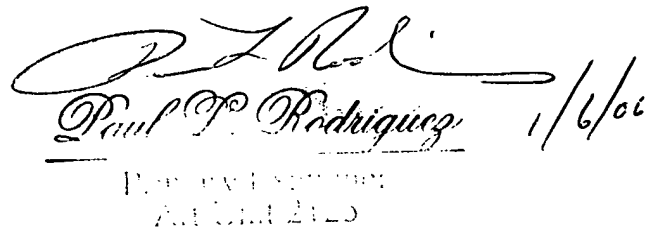 Paul P. Rodriguez 1/6/06
Primary Examiner
Art Unit 2125